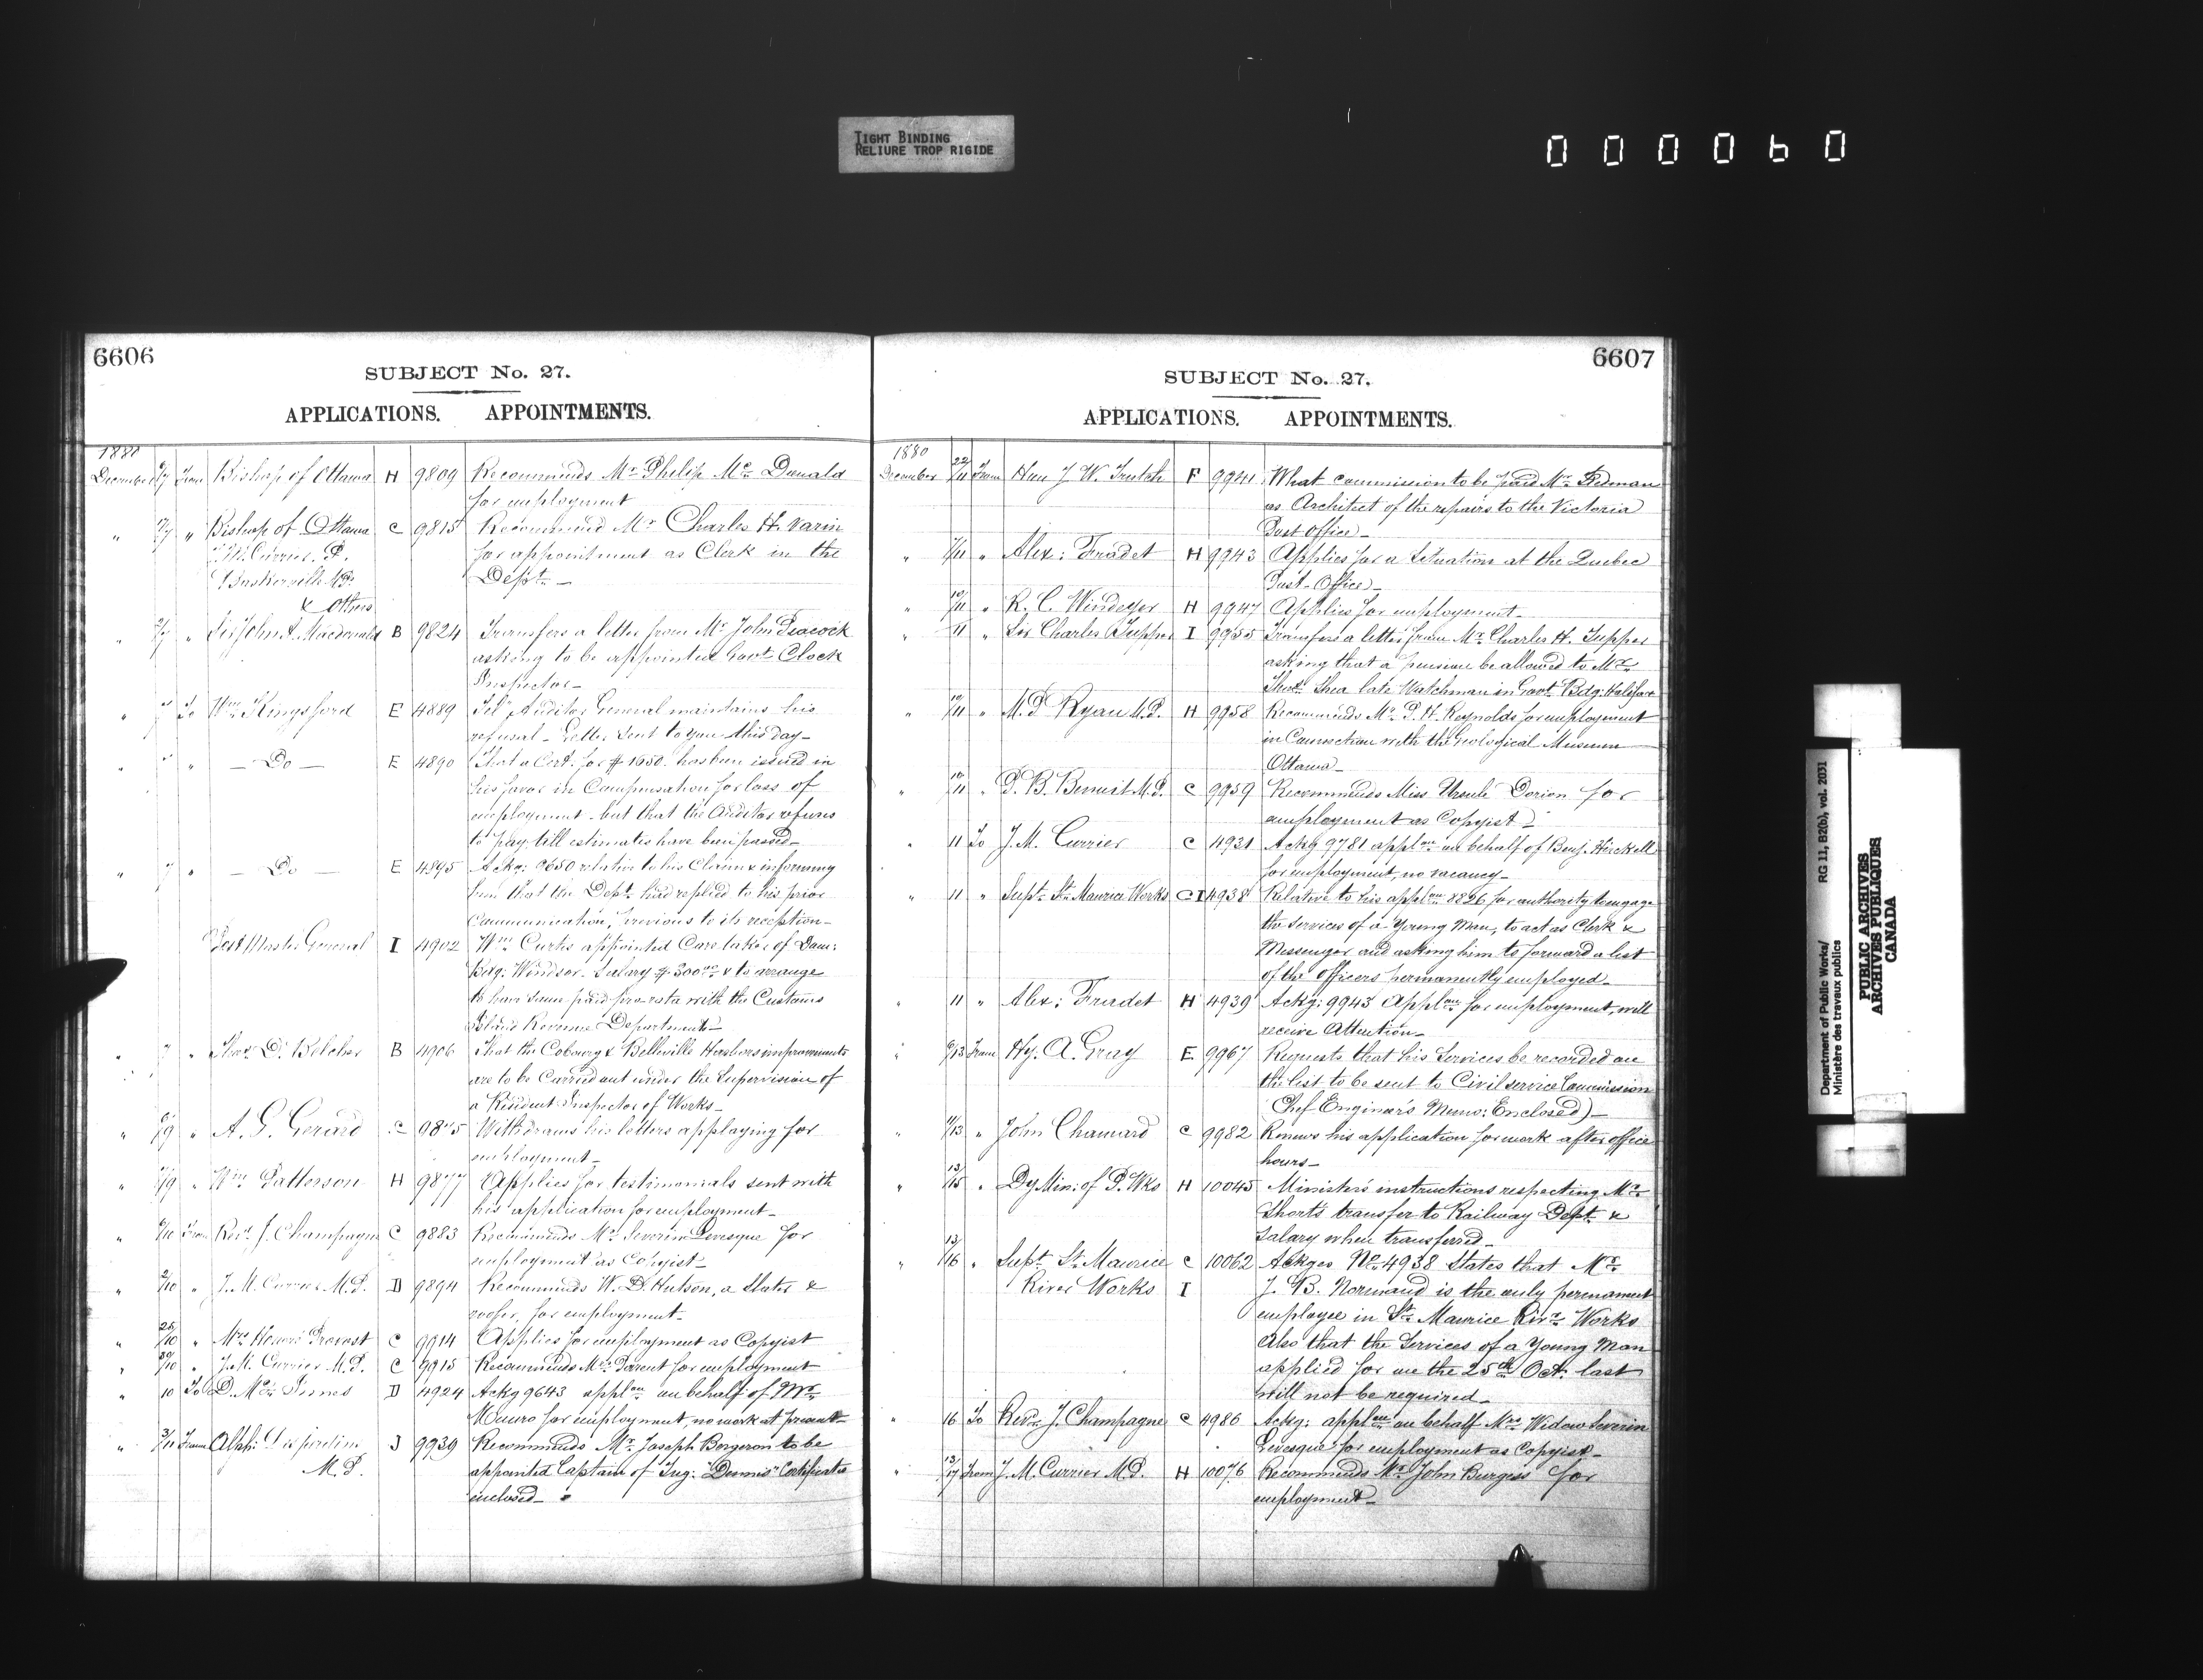 TIGHT BINDING
RELIURE TROP RIGIDE
000060
6606
SUBJECT No. 27.
APPLICATIONS. APPOINTMENTS.
1880
December From Bishop of Ottawa H 9809 Recommends Mr. Philip Mc. Donald
for employment
" " Bishop of Ottawa C 9815 Recommend Mr Charles H. Varin
for appointment as Clerk in the
Dept. —
& Others
" " Sir John A. Macdonald B 9824 Transfers a letter from Mr. John Peacock
asking to be appointed Govt. Clock
Inspector —
" To Wm. Kingsford E 4889 Auditor General maintains his
refusal — Letter sent to you this day —
" " " — Do — E 4890 That a Cert. for $1650. has been issued in
his favor in Compensation for loss of
employment — but that the Auditor refuses
to pay till estimates have been passed —
" 7 " — Do — E 4895 Ackg: 9650 relative to his Claim & informing
him that the Dept. had replied to his prior
Communication, previous to its reception —
Post Master General I 4902 Wm. Curtis appointed Care taker of Dom:
Bdg: Windsor. Salary $300 & to arrange
to have same paid pro rata with the Customs
Inland Revenue Departments —
" 7 " Thos. D. Belcher B 4906 That the Cobourg & Belleville Harbors improvements
are to be Carried out under the Supervision of
a Resident Inspector of Works —
" " A. G. Gerard C 9875 Withdraws his letters applaying for
employment —
" " Wm. Patterson H 9877 Applies for testimonials sent with
his application for employment —
" From Revd. J. Champagne C 9883 Recommends Mrs. Severin Levesque for
employment as Copyist —
" " J. M. Currier M.P. D 9894 Recommends W. D. Hutson, a Slater &
roofer, for employment —
" " Mrs. Honoré Provost C 9914 Applies for employment as Copyist
" " J. M. Currier M.P. C 9915 Recommends Mrs. Parent for employment
" 10 To D. Mc. Innes D 4924 Ackg 9643 appl.on on behalf of Mr.
Munro for employment, no work at present —
" 3/11 From Alph: Desjardins J 9939 Recommends Mr. Joseph Bergeron to be
M.P. appointed Captain of Tug: "Dennis" Certificates
enclosed —
6607
SUBJECT No. 27.
APPLICATIONS. APPOINTMENTS.
1880
December 22/11 From Hon J. W. Trutch F 9941 What commission to be paid Mr.
as Architect of the repairs to the Victoria
Post Office —
" " Alex: Fradet H 9943 Applies for a Situation at the Quebec
Post-Office —
" 10/11 " R. C. Windeyer H 9947 Applies for employment —
" 11 " Sir Charles Tupper I 9955 Transfers a letter from Mr. Charles H. Tupper
asking that a pension be allowed to Mr.
Thos. Shea late Watchman in Govt. Bdg: Halifax
" 10/11 " M. P. Ryan M.P. H 9958 Recommends Mr. P. H. Reynolds for employment
in Connection with the Geological Museum
Ottawa —
" 10/11 " P. B. Benoit M.P. C 9959 Recommends Miss Ursule Dorion for
employment as Copyist —
" 11 To J. M. Currier C 4931 Ackg 9781 appl.on on behalf of Benj.
for employment, no vacancy —
" 11 " Supt. St. Maurice Works C I 4938 Relative to his appl.on 8826 for authority to engage
the services of a Young Man, to act as Clerk &
Messenger and asking him to forward a list
of the Officers permanently employed —
" 11 " Alex: Fradet H 4939 Ackg: 9943 Appl.on for employment, will
receive Attention —
" 9/13 From Hy. A. Gray E 9967 Requests that his Services be recorded on
the list to be sent to Civil service Commission
(Chef Engineer's Memo: Enclosed) —
" " John Chamard C 9982 Renews his application for work after office
hours —
" 13/15 " Dy Min: of P. Wks H 10045 Minister's instructions respecting Mr.
Short's transfer to Railway Dept. &
Salary when transferred —
" 13/16 " Supt. St. Maurice C 10062 Ackges No. 4938 States that Mr.
River Works I J. B. Normand is the only permanent
employee in St. Maurice River Works
Also that the Services of a Young Man
applied for on the 25th Oct. last
will not be required —
" 16 To Revd. J. Champagne C 4986 Ackg: appl.on on behalf Mrs. Widow Severin
Levesque for employment as Copyist —
" 13/17 From J. M. Currier M.P. H 10076 Recommends Mr. John Burgess for
employment —
Department of Public Works/ RG 11, B2(b), vol. 2031
Ministère des travaux publics
PUBLIC ARCHIVES
ARCHIVES PUBLIQUES
CANADA